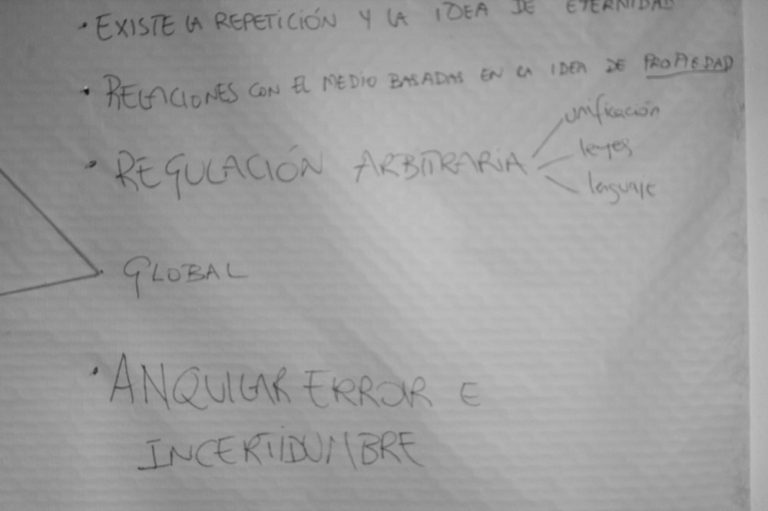 • EXISTE LA REPETICIÓN Y LA IDEA DE ETERNIDAD
• RELACIONES CON EL MEDIO BASADAS EN LA IDEA DE PROPIEDAD
• REGULACIÓN ARBITRARIA
unificación
leyes
lenguaje
• GLOBAL
• ANIQUILAR ERROR E
INCERTIDUMBRE